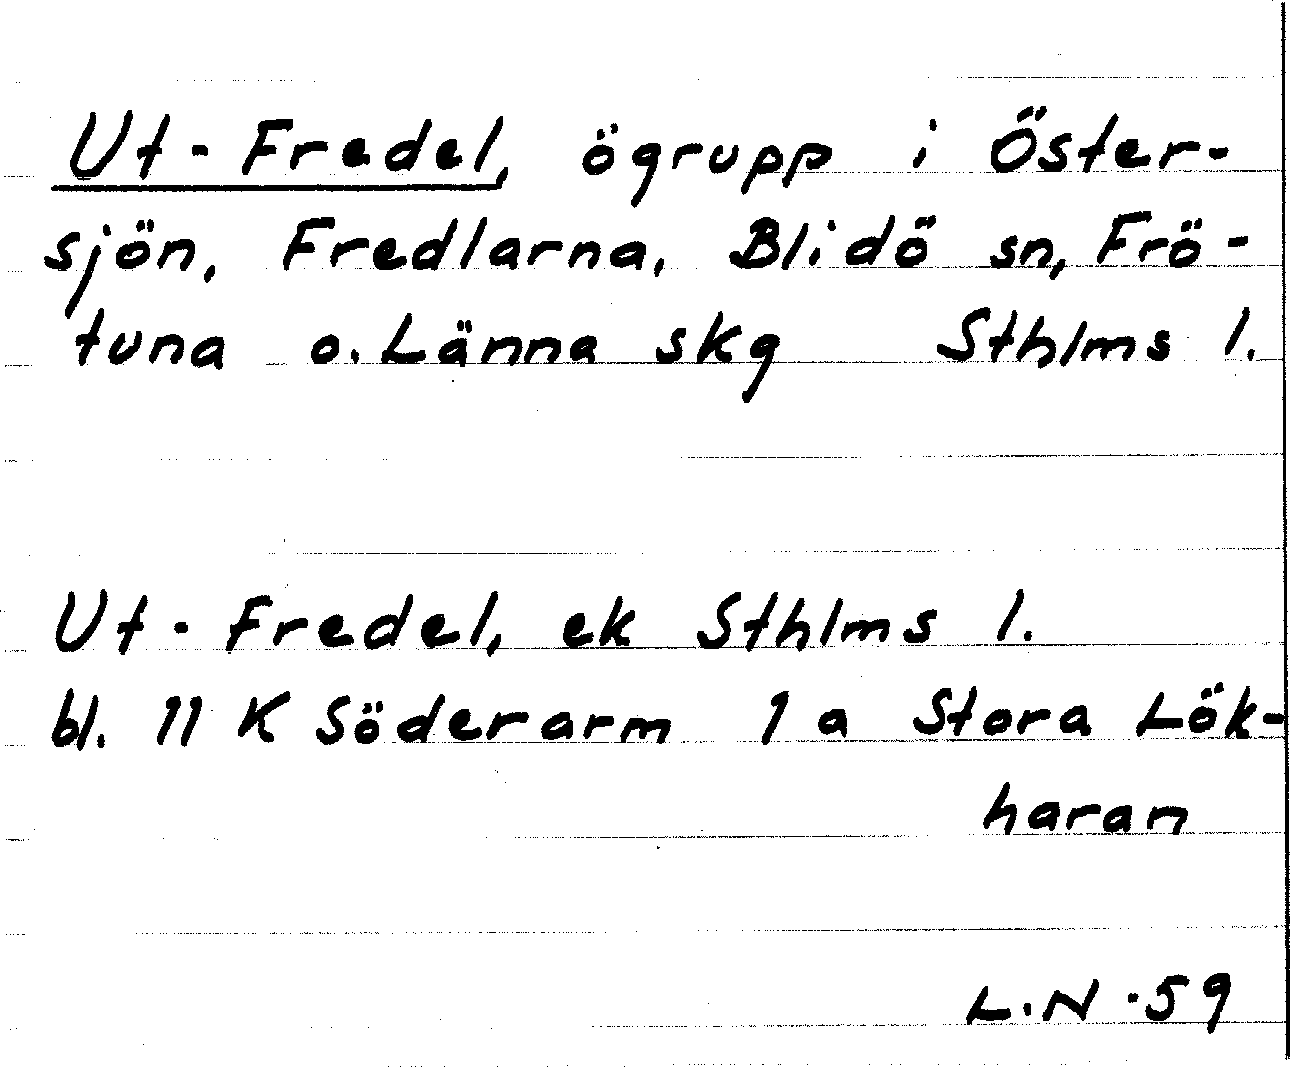 Ut-Fredel, ögrupp i Öster-
sjön, Fredlarna, Blidö sn, Frö-
tuna o. Länna skg Sthlms l.
Ut-Fredel, ek Sthlms l.
bl. 11 K Söderarm 1 a Stora Lök-
haran
L.N -59